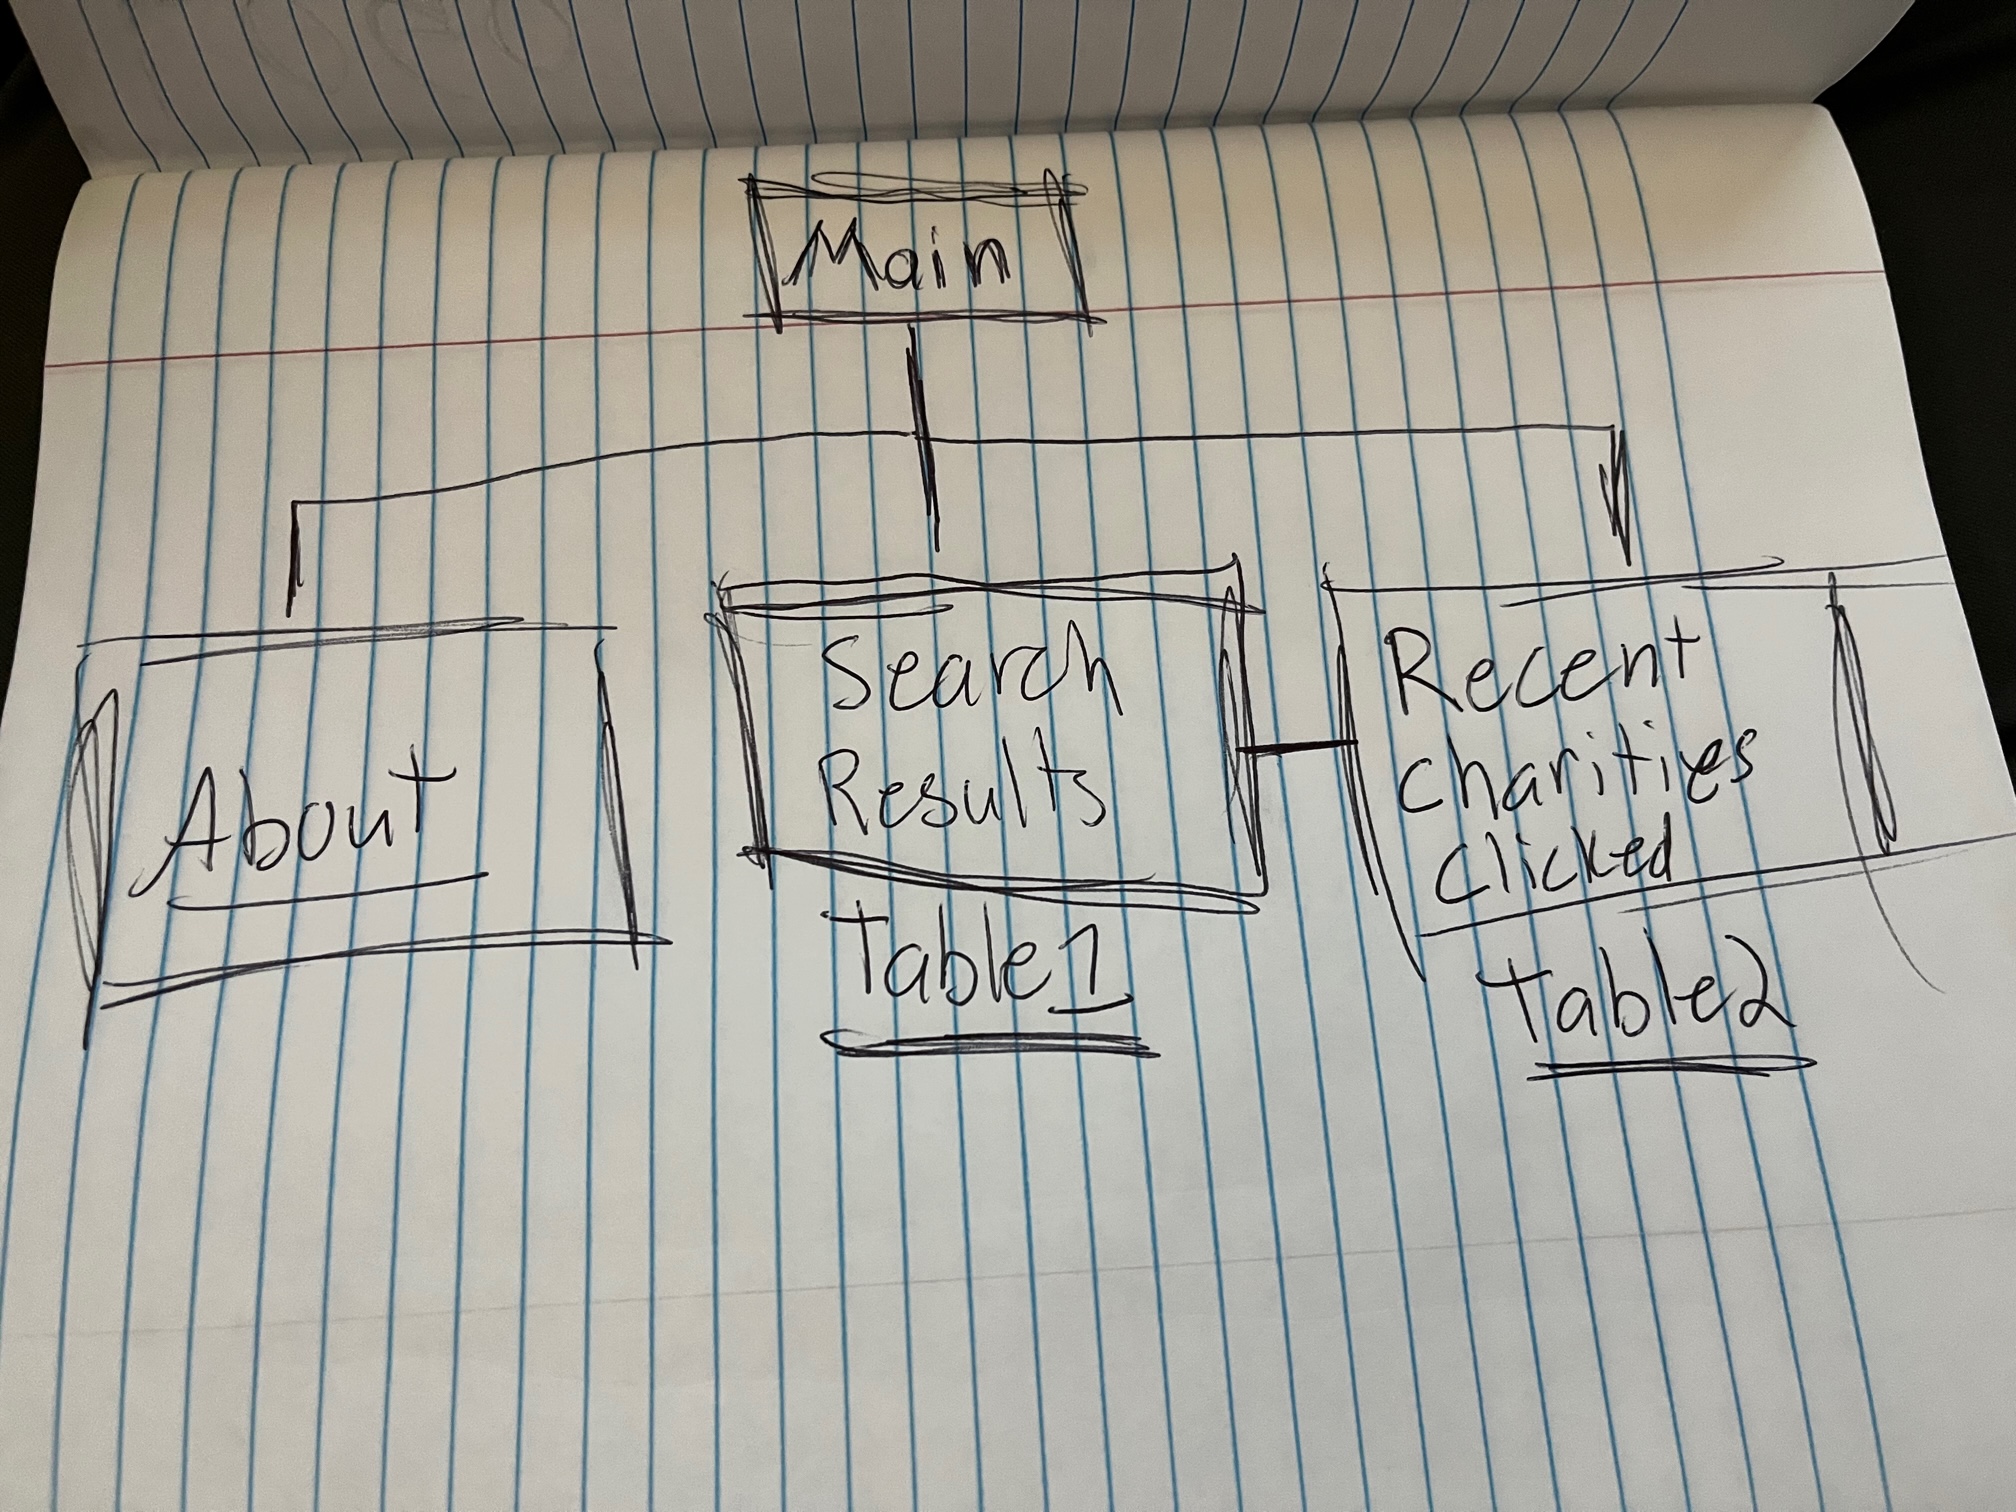 Main
About
Search
Results
Table 1
Recent
Charities
Clicked
Table2